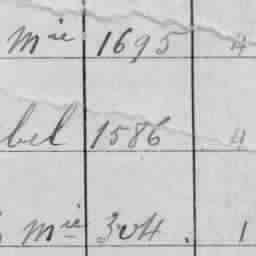 Mie 1695 4
bel 1586 4
Mie 304. 1